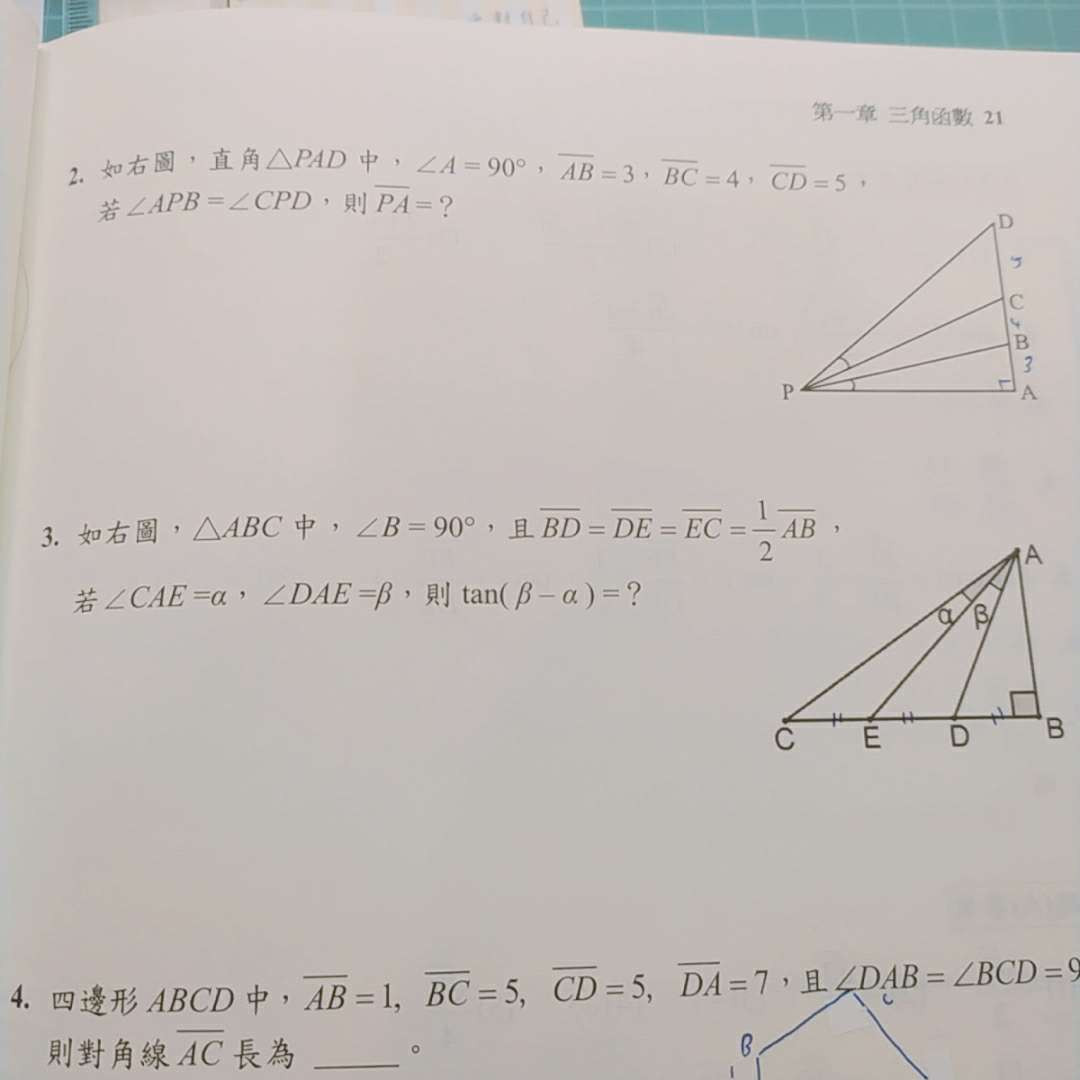 第一章 三角函數 21
2. 如右圖，直角△PAD 中，∠A = 90°，AB = 3，BC = 4，CD = 5，
若∠APB = ∠CPD，則 PA = ？
D
5
C
4
B
3
P
A
3. 如右圖，△ABC 中，∠B = 90°，且 BD = DE = EC = 1/2 AB，
若∠CAE =α，∠DAE =β，則 tan( β – α ) = ？
A
α β
C E D B
4. 四邊形 ABCD 中，AB = 1, BC = 5, CD = 5, DA = 7，且∠DAB = ∠BCD = 9
則對角線 AC 長為 ______。
B
1